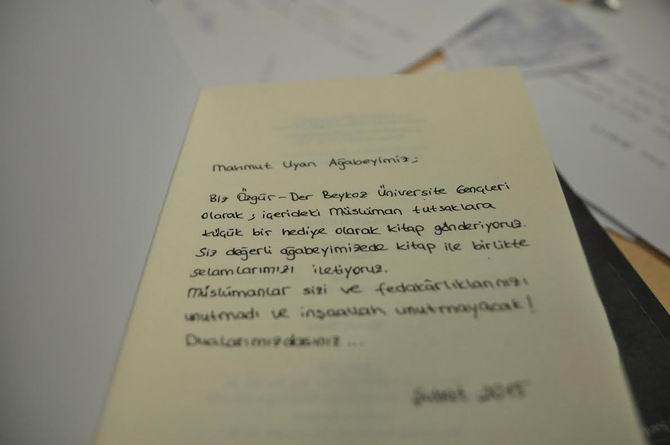 Mahmut Uyan Ağabeyimiz;
Biz Özgür-Der Beykoz Üniversite Gençleri
olarak, içerideki Müslüman tutsaklara
küçük bir hediye olarak kitap gönderiyoruz.
Siz değerli ağabeyimizede kitap ile birlikte
selamlarımızı iletiyoruz.
Müslümanlar sizi ve fedakârlıklarınızı
unutmadı ve inşaallah unutmayacak!
Dualarımızdasınız...
Şubat 2015